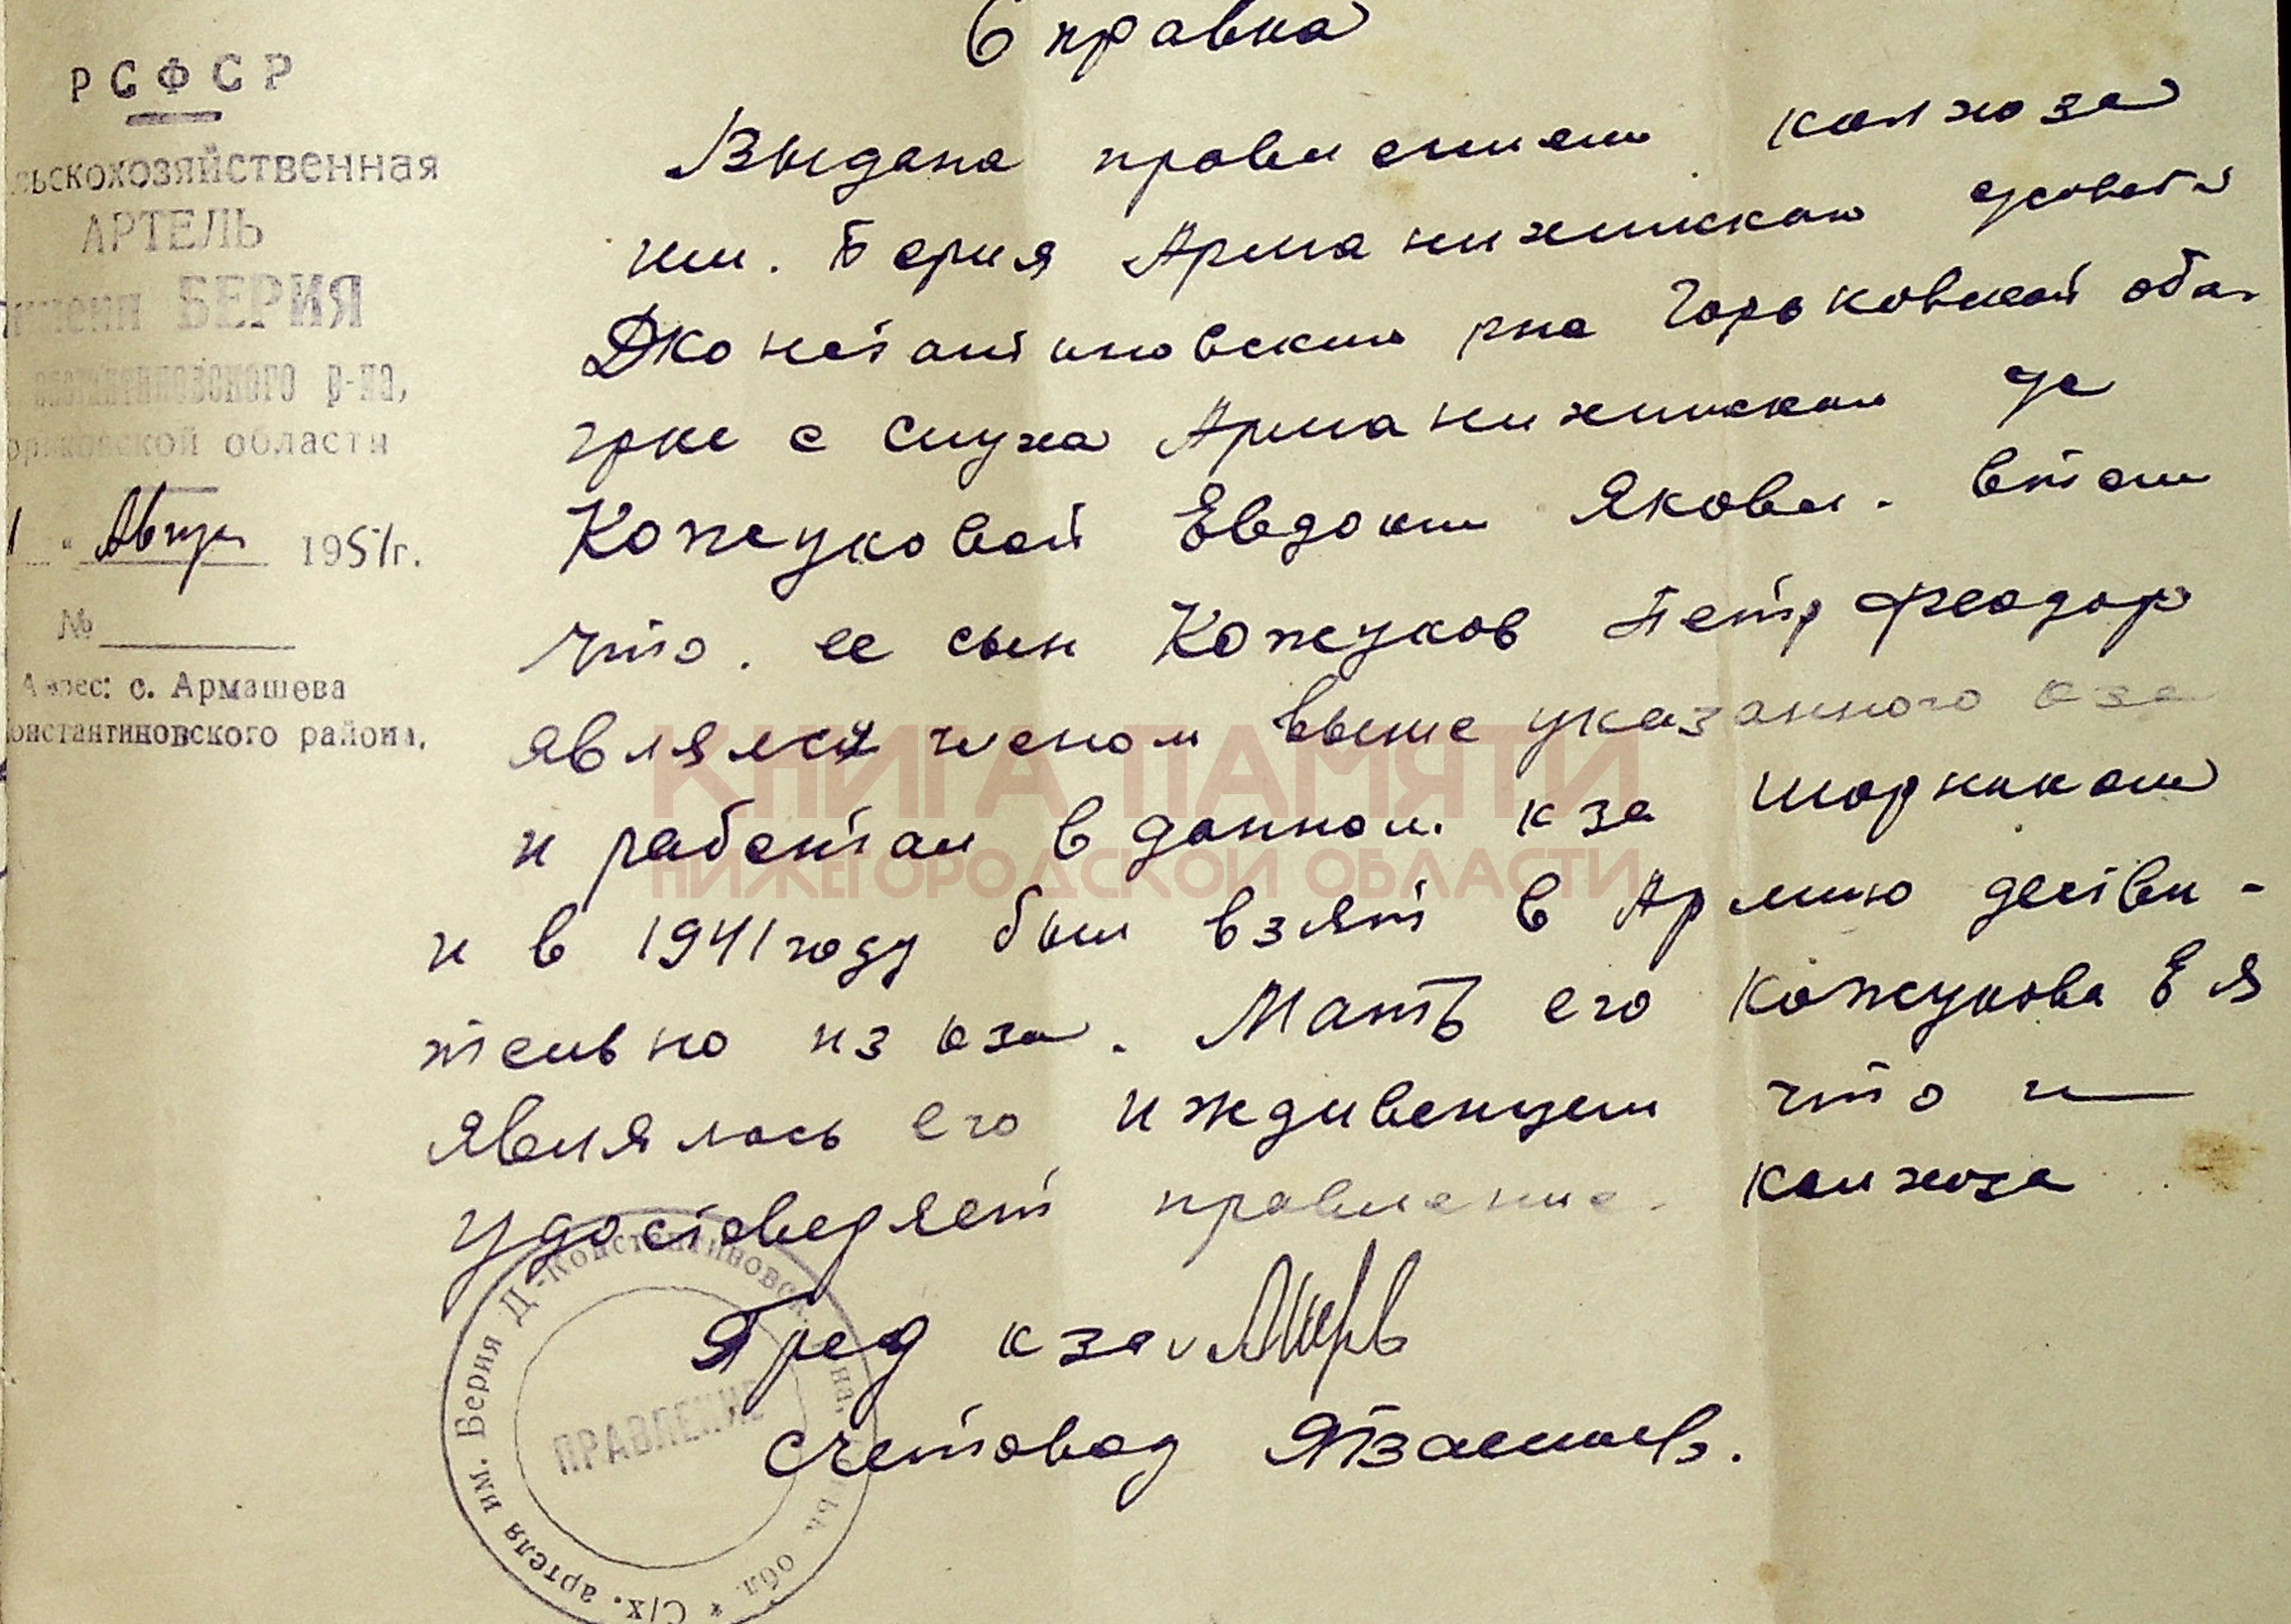 Справка
РСФСР
льскохозяйственная
АРТЕЛЬ
имени БЕРИЯ
онстантиновского р-на,
орьковской области
1 " Август 1951г.
№
Адрес: с. Армашева
онстантиновского района.
Выдана правлением колхоза
им. Берия
Дконстантиновским рна Горьковской обл.
гркe с
Кожуковой Евдоким Яковл. втом
что. ее сын Кожуков Петр Феодор
являлся членом выше указанного кза
и работал в данном. кза шорником
и в 1941 году был взят в Армию действи-
тельно из кза. Мать его Кожукова Е Я
являлась его иждивенцем что и
удостоверяет правление колхоза
Пред кза
счетовод
С/х. артель им. Берия Д-Константиновск на, обл. *
ПРАВЛЕНИЕ
КНИГА ПАМЯТИ
НИЖЕГОРОДСКОЙ ОБЛАСТИ